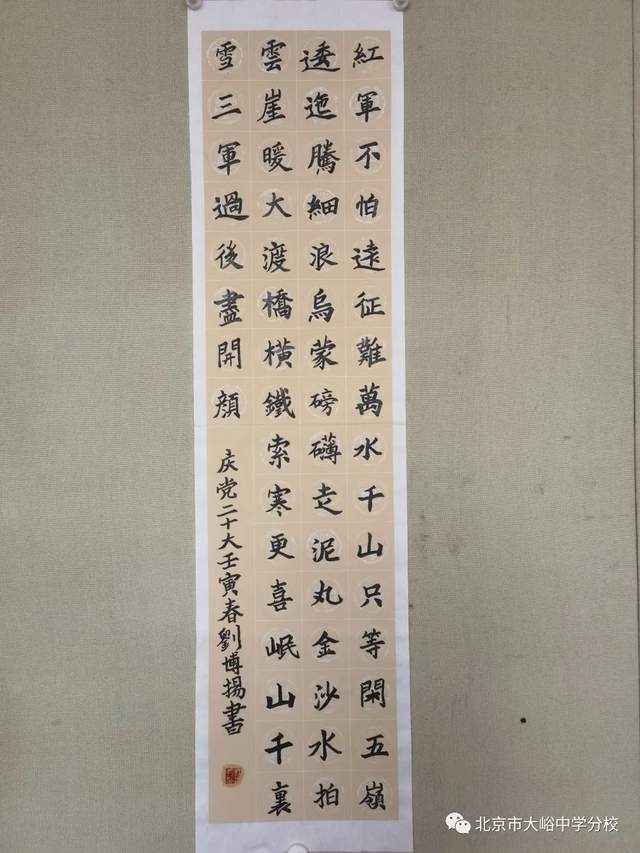 紅軍不怕遠征難萬水千山只等閑五嶺
逶迤騰細浪烏蒙磅礴走泥丸金沙水拍
雲崖暖大渡橋橫鐵索寒更喜岷山千裏
雪三軍過後盡開顔
庆党二十大壬寅春劉博揚書
北京市大峪中学分校